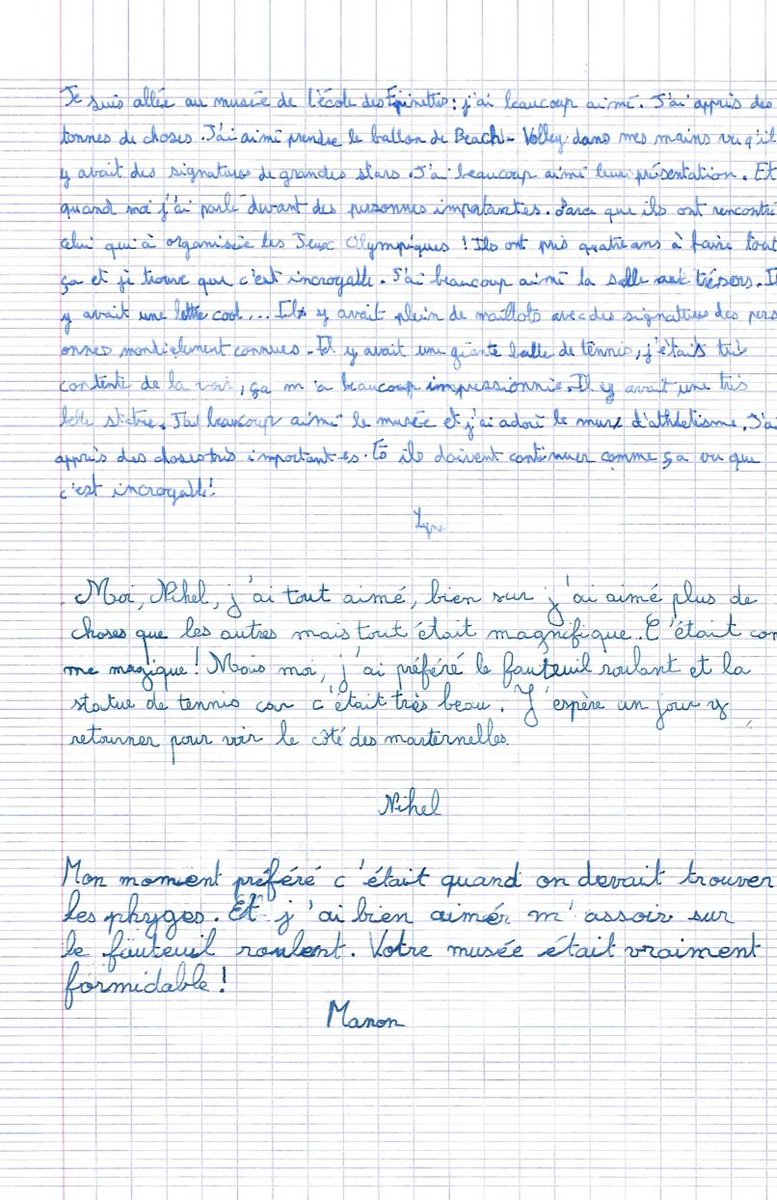 Je suis allée au musée de l'école des Épinettes : j'ai beaucoup aimé. J'ai appris des
tonnes de choses. J'ai aimé prendre le ballon de Beach-Volley dans mes mains vu qu'il
y avait des signatures de grandes stars. J'ai beaucoup aimé leur présentation. Et
quand moi j'ai parlé devant des personnes importantes. Parce que ils ont rencontré
celui qui à organisée les Jeux Olympiques ! Ils ont pris quatre ans à faire tout
ça et je trouve que c'est incroyable. J'ai beaucoup aimé la salle aux trésors. Il
y avait une lettre cool... Ils y avait plein de maillots avec des signatures des pers
onnes mondialement connues. Il y avait une géante balle de tennis, j'étais très
contente de la voir, ça m'a beaucoup impressionnée. Il y avait une très
belle statue. J'ai beaucoup aimé le musée et j'ai adoré le mur d'athlétisme. J'ai
appris des choses très importantes. Et ils doivent continuer comme ça vu que
c'est incroyable!
Moi, Nihel, j'ai tout aimé, bien sur j'ai aimé plus de
choses que les autres mais tout était magnifique. C'était com
me magique ! Mais moi, j'ai préféré le fauteuil roulant et la
statue de tennis car c'était très beau. J'espère un jour y
retourner pour voir le côté des masternelles.
Nihel
Mon moment préféré c'était quand on devait trouver
les phyges. Et j'ai bien aimér m'assoir sur
le fauteuil roulent. Votre musée était vraiment
formidable !
Manon